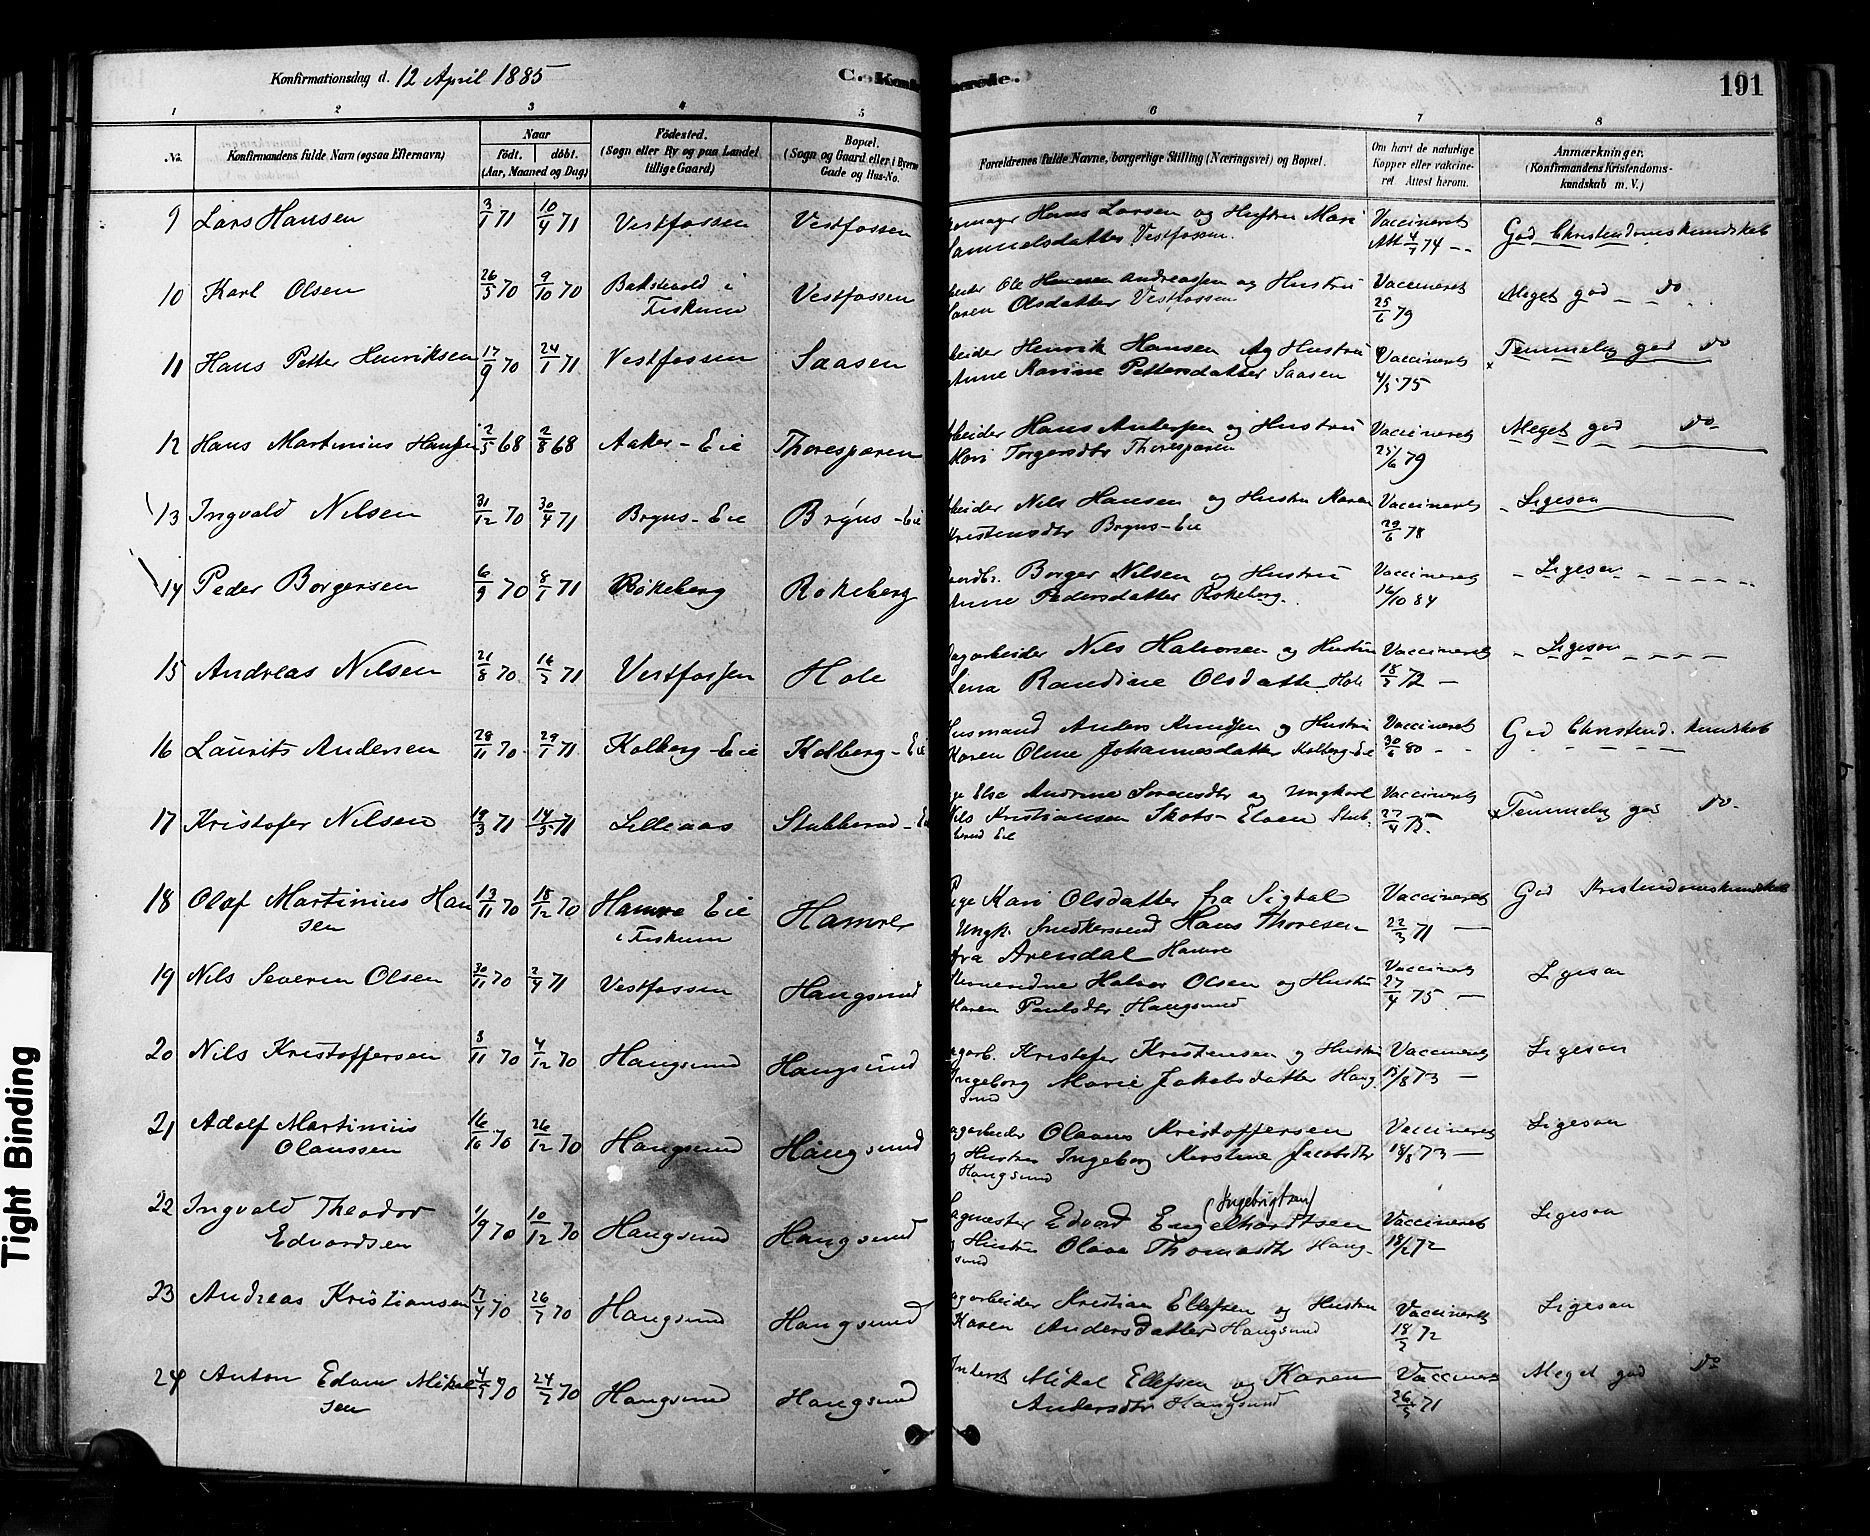 Konfirmationsdag d. 12 April 1885
C. Konf
merede.
191
1 2 3 4 5 6 7 8
No.
Konfirmandens fulde Navn (ogsaa Efternavn)
Naar
födt. döbt.
(Aar, Maaned og Dag)
Födested.
(Sogn eller By og paa Landet
tillige Gaard)
Bopæl.
(Sogn og Gaard eller i Byerne
Gade og Hus-No.
Forældrenes fulde Navne, borgerlige Stilling (Næringsvei) og Bopæl.
Om havt de naturlige
Kopper eller vakcine-
ret Attest herom.
Anmærkninger.
(Konfirmandens Kristendoms-
kundskab m. V.)
9 Lars Hansen 3/1 71 10/4 71 Vestfossen Vestfossen
Hans Larsen og Hustru Mari
Samuelsdatter Vestfossen.
Vaccineret
Att 4/7 74
God Christendomskundskab
10 Karl Olsen 26/5 70 9/10 70 Vestfossen
Fiskum
Ole Andreassen og Hustru
Karen Olsdatter Vestfossen
Vaccineret
25/6 79
Meget god do
11 Hans Petter Henriksen 17/9 70 24/1 71 Vestfossen Saasen
Henrik Hansen og Hustru
Anne Karine Pettersdatter Saasen
Vaccineret
4/5 75
Temmelig god do
12 Hans Martinius Hansen 2/5 68 2/8 68 Aaker-Eie Thoresparen
beider Hans Andersen og Hustru
Kari Torgersdtr Thoresparen
Vaccineret
25/6 79
Meget god do
13 Ingvald Nilsen 31/12 70 30/4 71 Bryns-Eie Bryns-Eie
beider Nils Hansen og Hustru Karen
Kristensdtr Bryns-Eie
Vaccineret
29/6 78
Ligesaa
14 Peder Borgersen 6/9 70 8/1 71 Rökeberg Rökeberg
Borger Nilsen og Hustru
Anne Pedersdatter Rökeberg.
Vaccineret
16/10 84
Ligesaa
15 Andreas Nilsen 21/8 70 16/5 71 Vestfossen Hole
agarbeider Nils Halvorsen og Hustru
Lena Randine Olsdatter Hole
Vaccineret
18/3 72
Ligesaa
16 Laurits Andersen 28/11 70 29/1 71 Kolberg-Eie Kolberg-Eie
Husmand Anders Knudsen og Hustru
Karen Oline Johannesdatter Kolberg-Eie
Vaccineret
30/6 80
God Christend. kundskab
17 Kristofer Nilsen 18/3 71 14/5 71 Lilleaas Stubberud-Ei
Else Andrine Sörensdtr og Ungkarl
Nils Kristiansen Skots-Elven Stub-
berud Eie
Vaccineret
27/4 75
Temmelig god do
18 Olaf Martinius Han
sen
13/11 70 18/12 70 Hamre Eie
i Fiskum
Hamre
Pige Kari Olsdatter fra Sigdal
Ungk. Snedkersvend Hans Thoresen
fra Arendal Hamre
Vaccineret
22/3 71
God Kristendomskundskab
19 Nils Severin Olsen 30/11 70 2/4 71 Vestfossen Haugsund
Halvor Olsen og Hustru
Karen Paulsdtr. Haugsund
Vaccineret
27/4 75
Ligesaa
20 Nils Kristoffersen 3/11 70 4/12 70 Haugsund Haugsund
agarb. Kristofer Kristensen og Hustru
Ingeborg Marie Jakobsdatter Haug
sund
Vaccineret
18/8 73
Ligesaa
21 Adolf Martinius
Olaussen
16/10 70 26/12 70 Haugsund Haugsund
agarbeider Olaus Kristoffersen
Hustru Ingeborg Kirstine Jacobsdtr
Haugsund
Vaccineret
18/8 73
Ligesaa
22 Ingvald Theodor
Edvardsen
1/9 70 10/12 70 Haugsund Haugsund
(Ingebrigtsen)
Sagmester Edvard Engelhardtsen
Hustru Olave Thomasdtr Haug-
sund
Vaccineret
18/2 72
Ligesaa
23 Andreas Kristiansen 17/4 70 26/7 70 Haugsund Haugsund
agarbeider Kristian Ellefsen og Hustru
Karen Andersdatter Haugsund
Vaccineret
18/3 72
Ligesaa
24 Anton Edvin Mikal
sen
4/5 70 24/7 70 Haugsund Haugsund
Mikal Ellefsen og Karen
Andersdtr Haugsund
Vaccineret
26/5 71
Meget god do
Tight Binding